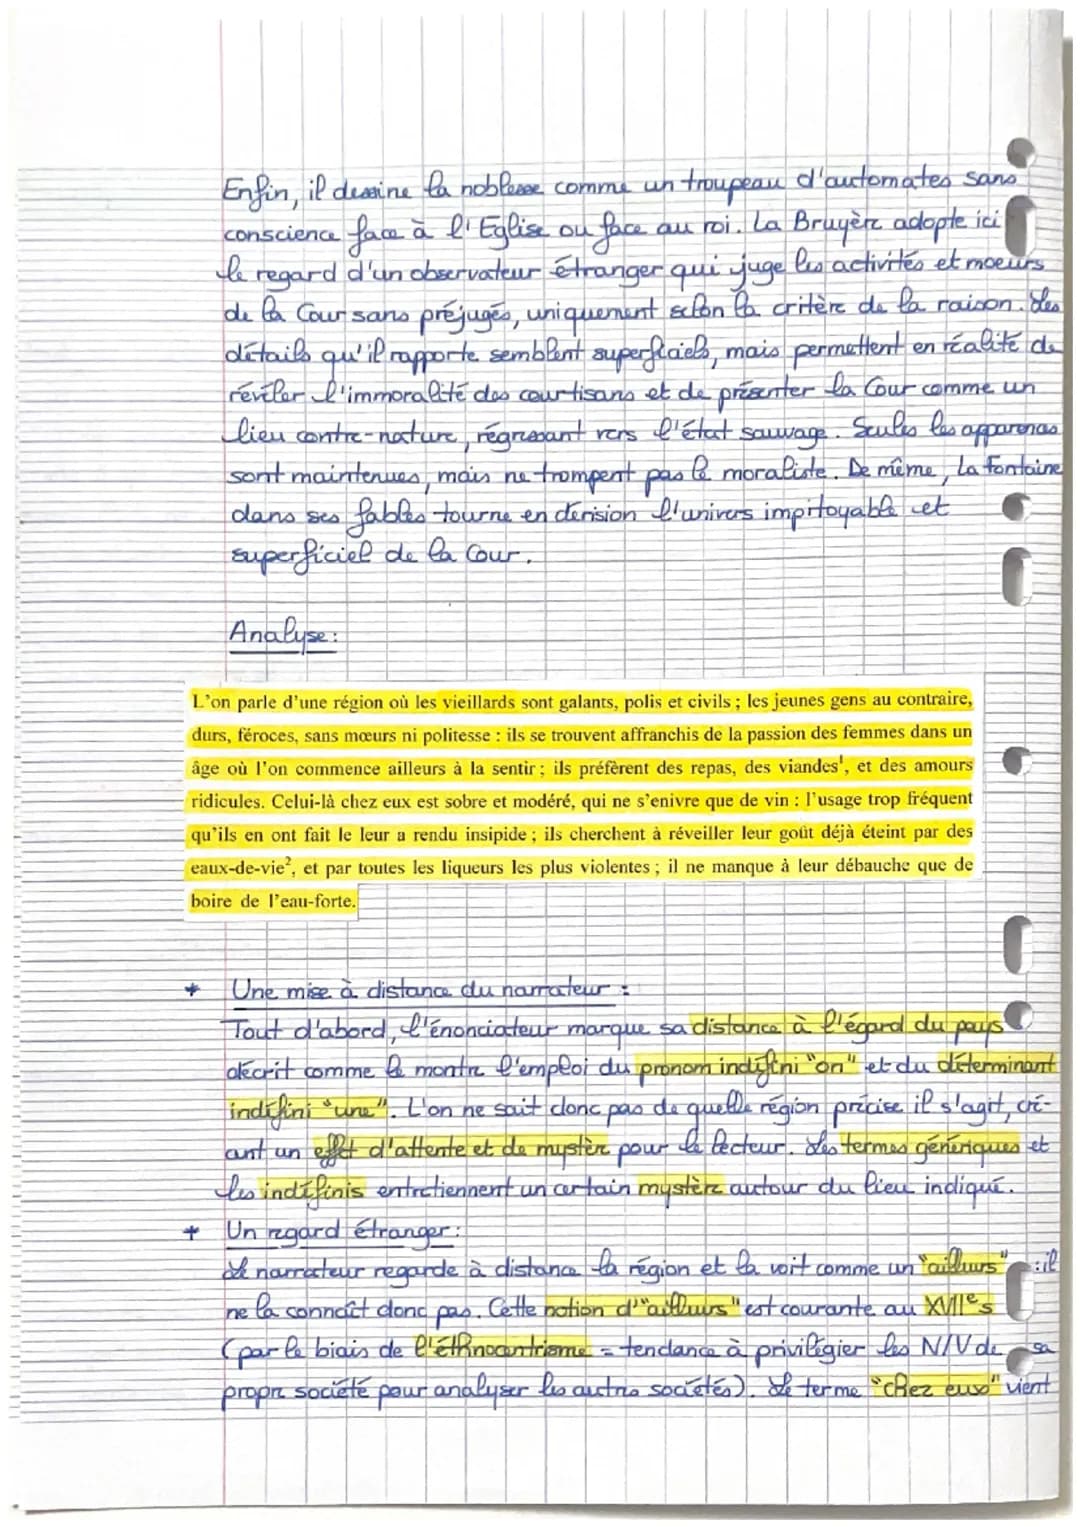 Enfin, il dessine la noblesse comme un troupeau d'automates sans
conscience face à l'Eglise ou face au roi. La Bruyère adopte ici
le regard d'un observateur étranger qui juge les activités et moeurs
de la Cour sans préjugés, uniquement selon la critère de la raison. Les
détails qu'il rapporte semblent superficiels, mais permettent en réalité de
révéler l'immoralité des courtisans et de présenter la Cour comme un
lieu contre-nature, régressant vers l'état sauvage. Seules les apparences
sont maintenues, mais ne trompent pas le moraliste. De même, La Fontaine
dans ses fables tourne en dérision l'univers impitoyable et
superficiel de la Cour.
Analyse :
L'on parle d'une région où les vieillards sont galants, polis et civils ; les jeunes gens au contraire,
durs, féroces, sans mœurs ni politesse : ils se trouvent affranchis de la passion des femmes dans un
âge où l'on commence ailleurs à la sentir ; ils préfèrent des repas, des viandes¹, et des amours
ridicules. Celui-là chez eux est sobre et modéré, qui ne s'enivre que de vin : l'usage trop fréquent
qu'ils en ont fait le leur a rendu insipide ; ils cherchent à réveiller leur goût déjà éteint par des
eaux-de-vie², et par toutes les liqueurs les plus violentes ; il ne manque à leur débauche que de
boire de l'eau-forte.
* Une mise à distance du narrateur :
Tout d'abord, l'énonciateur marque sa distance à l'égard du pays
décrit comme le montre l'emploi du pronom indéfini "on" et du déterminant
indéfini "une". L'on ne sait donc pas de quelle région précise il s'agit, cré-
ant un effet d'attente et de mystère pour le lecteur. Les termes génériques et
les indéfinis entretiennent un certain mystère autour du lieu indiqué.
* Un regard étranger :
Le narrateur regarde à distance la région et la voit comme un "ailleurs" : il
ne la connaît donc pas. Cette notion d'"ailleurs" est courante au XVIIe s
(par le biais de l'éthnocentrisme = tendance à privilégier les N/V de sa
propre société pour analyser les autres sociétés). Le terme "chez eux" vient